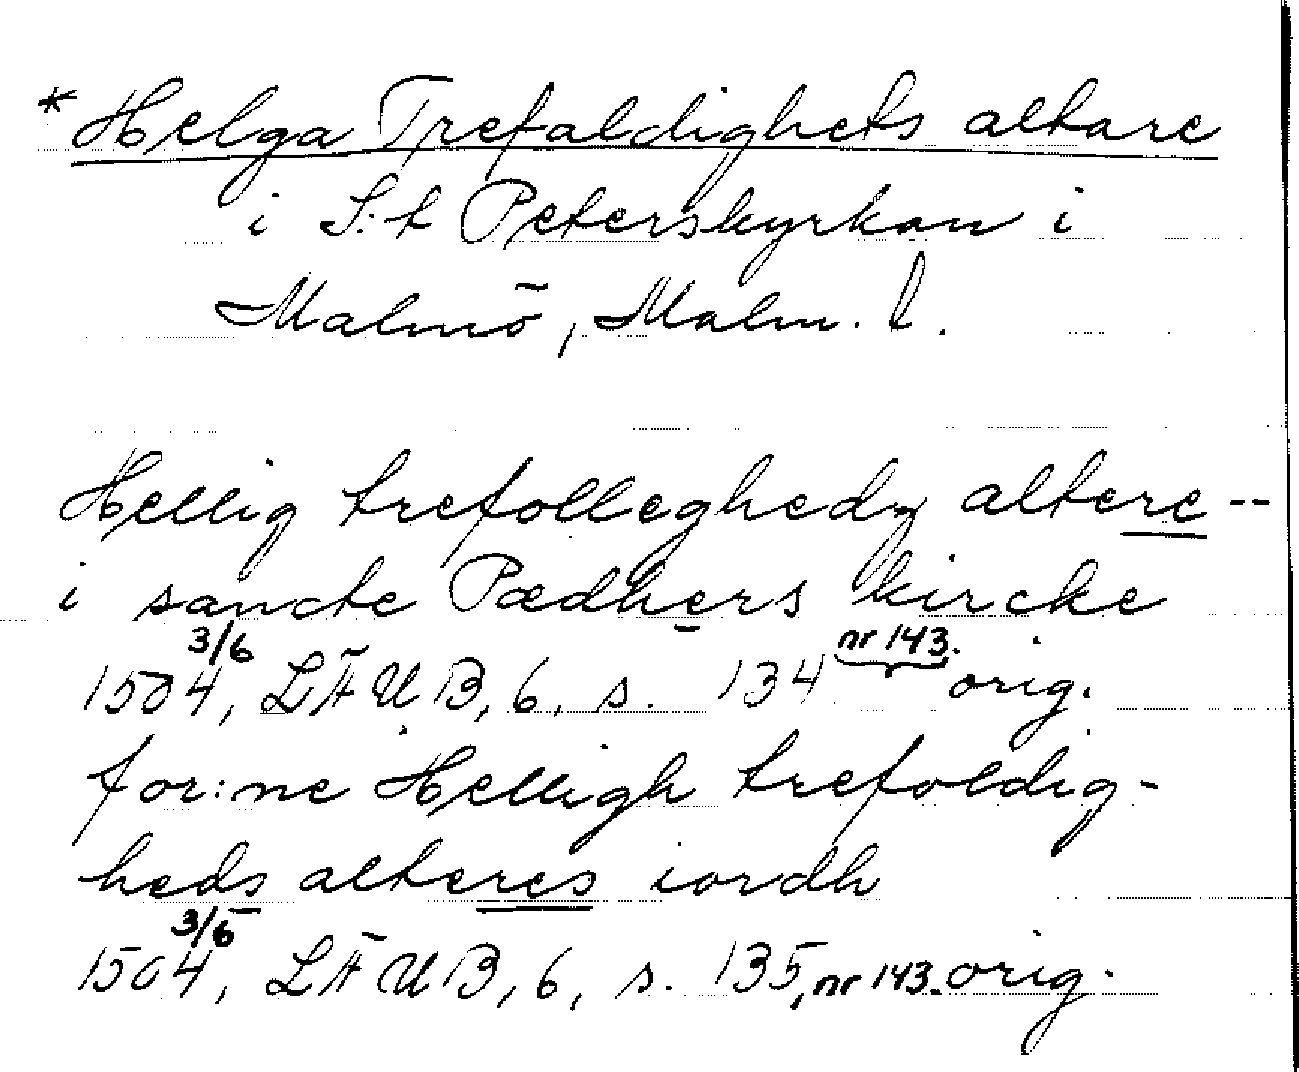 * Helga Trefaldighets altare
i S:t Peterskyrkan i
Malmö, Malm. l.
Hellig trefolleghedz altere --
i sancte Pædhers kircke
3/6 nr 143.
1504, LÄUB, 6, s. 134 orig.
for:ne Helligh trefoldig-
heds alteres iordh
3/6
1504, LÄUB, 6, s. 135, nr 143. orig.